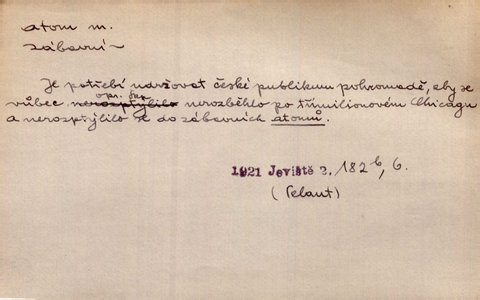 atom m.
zábavní
Je potřebí udržovat české publikum pohromadě, aby se
opr. škr.
vůbec nerozptýlilo nerozběhlo po třímilionovém Chicagu
a nerozptýlilo se do zábavních atomů.
1921 Jeviště 2. 182b, 6.
(Pelant)